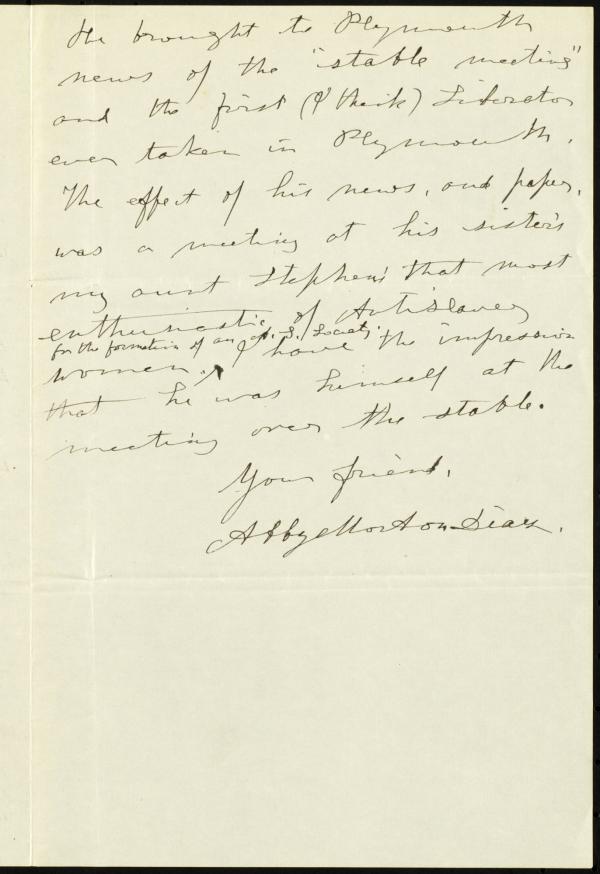 He brought to Plymouth
news of the "stable meeting"
and the first (I think) Liberator
ever taken in Plymouth.
The effect of his news, and paper,
was a meeting at his sister's
my aunt Stephens' that most
enthusiastic of Antislavery
for the formation of an A. S. Society
women. I have the impression
that he was himself at the
meeting over the stable.
Your friend,
Abby Morton Diaz.